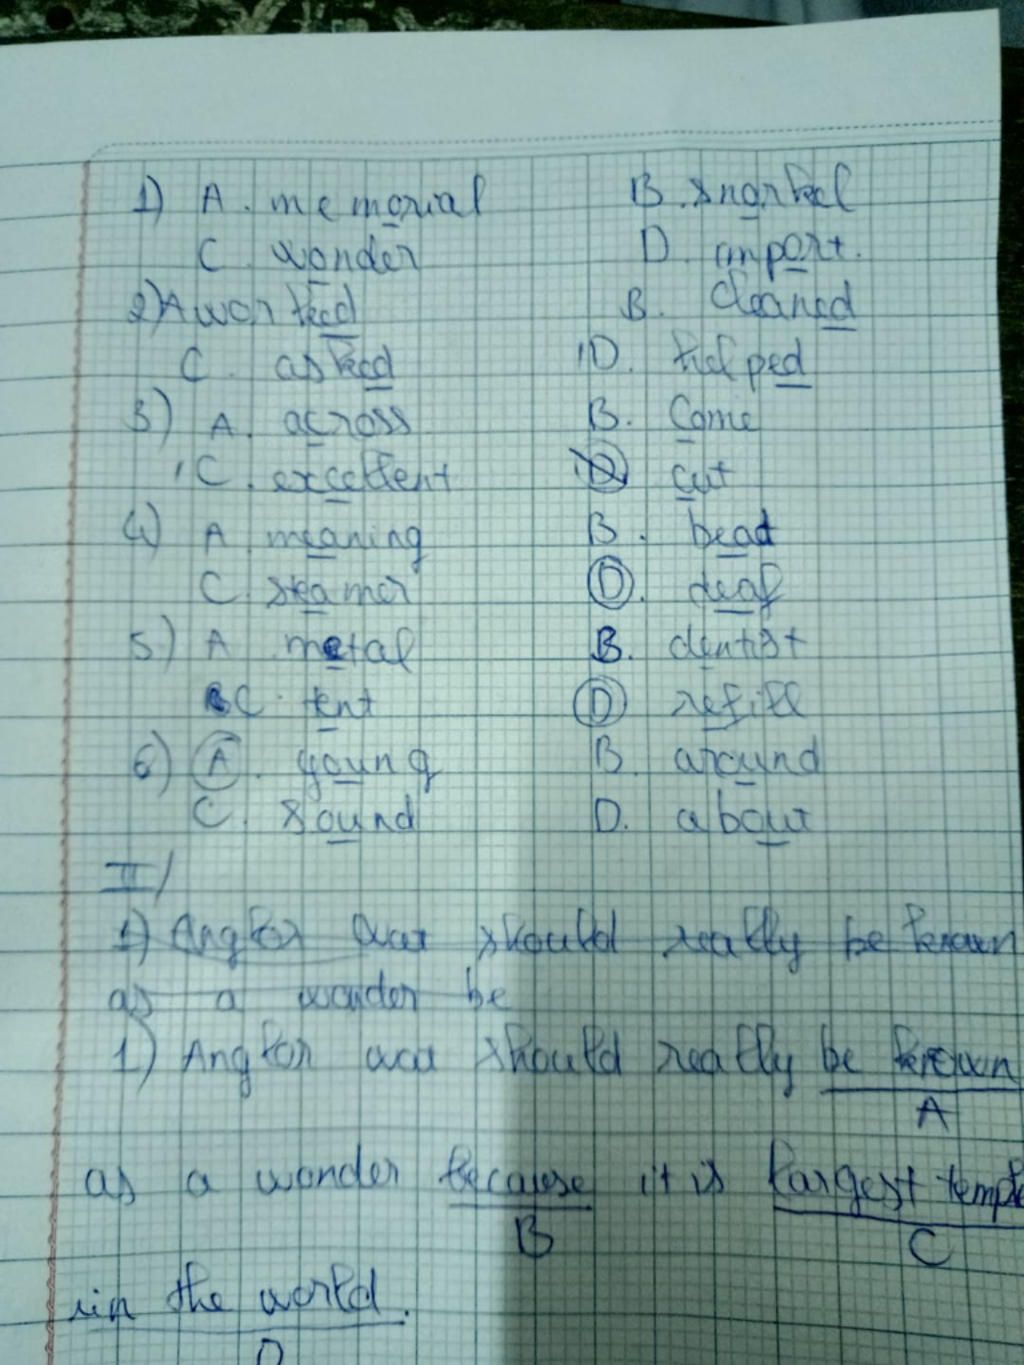 1) A. memorial B. snorkel
C. wonder D. import.
2) A worked B. cleaned
C. asked D. helped
3) A. across B. Come
C. excellent D cut
4) A meaning B. bead
C. steamer D. deaf
5) A metal B. dentist
C. tent D refill
6) A. young B. around
C. sound D. about
II/
1) Angkor wat should really be known
as a wonder be
1) Angkor wat should really be known
A
as a wonder because it is largest temple
B C
in the world.
D